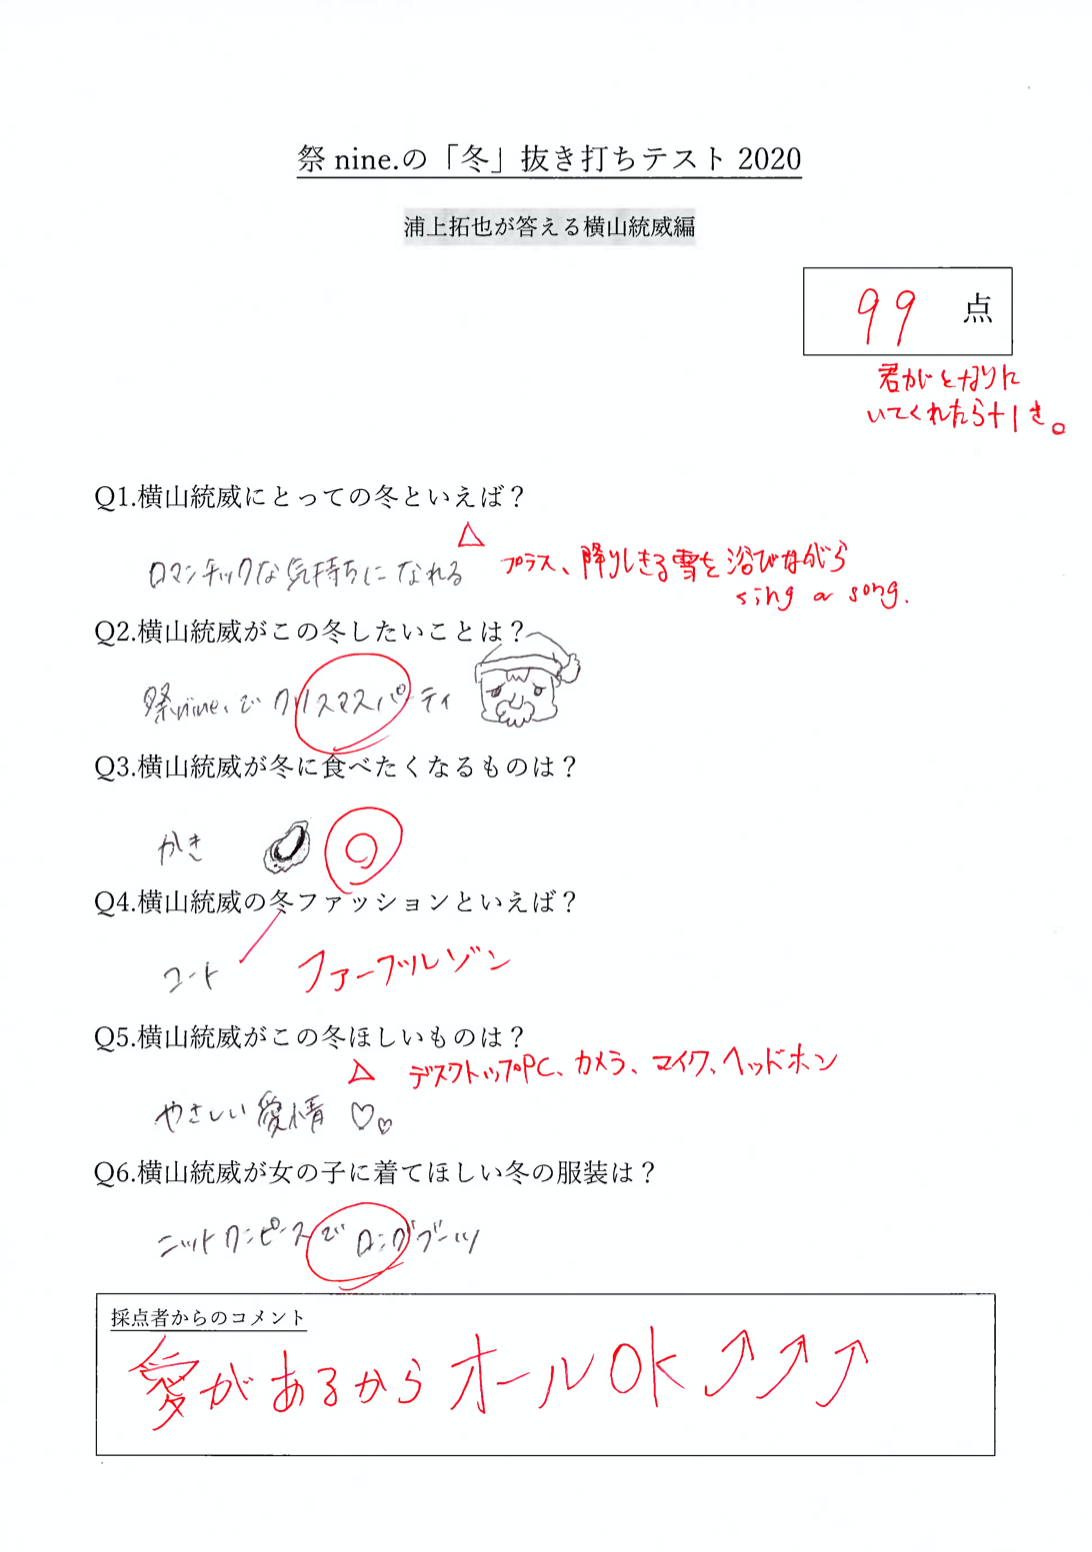 祭 nine.の「冬」抜き打ちテスト 2020
浦上拓也が答える横山統威編
99 点
君がとなりに
いてくれたら+1さ。
Q1.横山統威にとっての冬といえば？
ロマンチックな気持ちになれる
△ プラス、降りしきる雪を浴びながら
sing a song.
Q2.横山統威がこの冬したいことは？
祭nine.でクリスマスパーティ
Q3.横山統威が冬に食べたくなるものは？
かき
Q4.横山統威の冬ファッションといえば？
コート
ファーブルゾン
Q5.横山統威がこの冬ほしいものは？
△ デスクトップPC、カメラ、マイク、ヘッドホン
やさしい愛情 ♡♡
Q6.横山統威が女の子に着てほしい冬の服装は？
ニットワンピースでロングブーツ
採点者からのコメント
愛があるからオールOK⤴⤴⤴